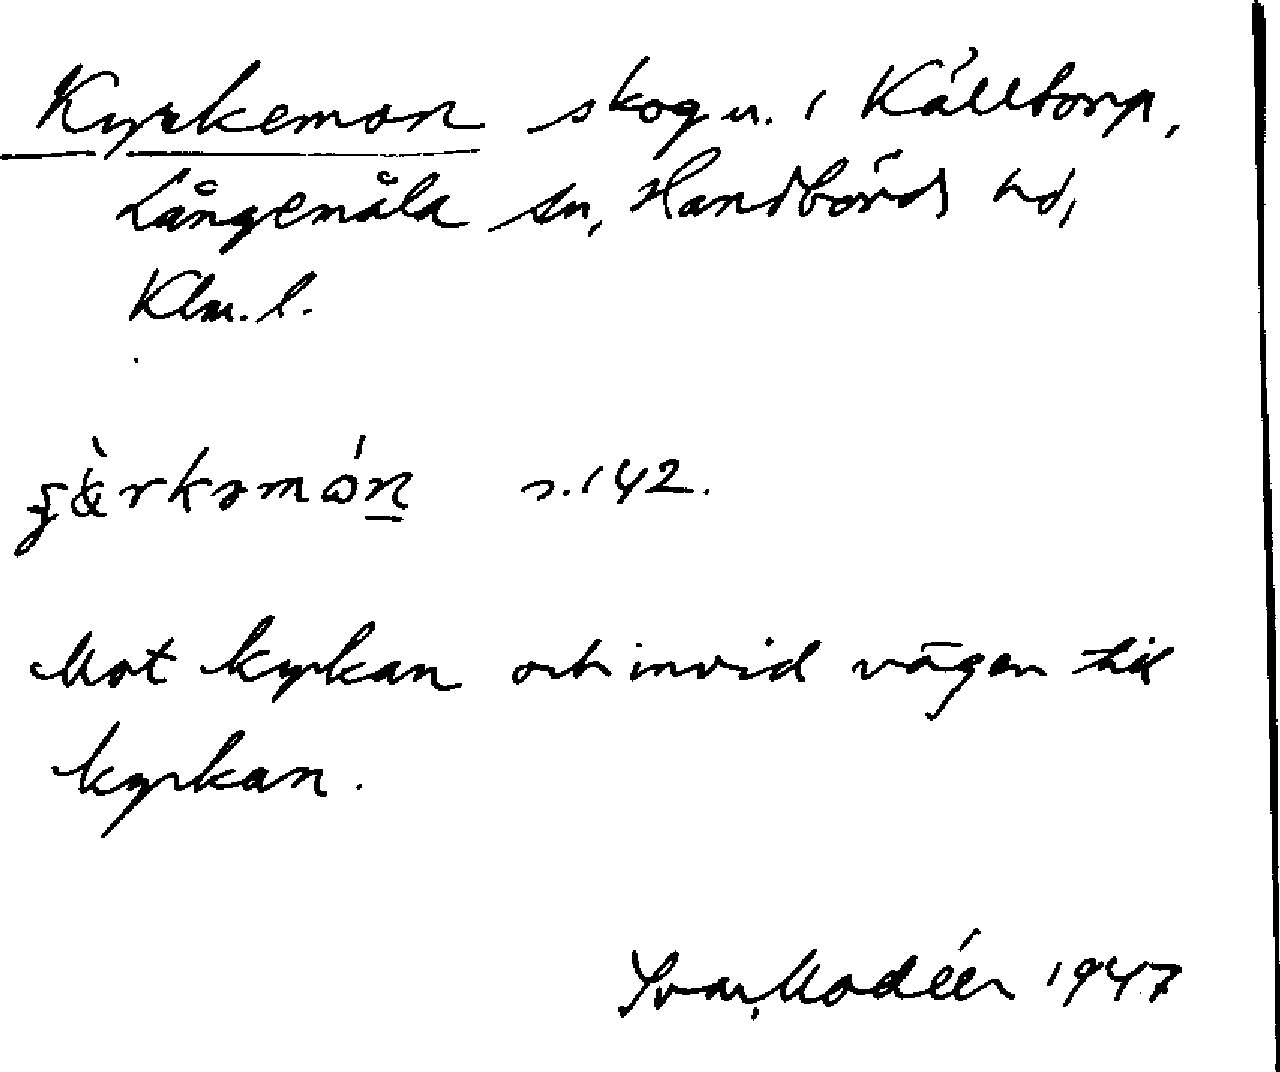 Kyrkemon skogn. i Källtorp,
Långemåla sn, Handbörds hd,
Klm. l.
s. 142.
Mot kyrkan och invid vägen till
kyrkan.
Ivar Modéer 1947